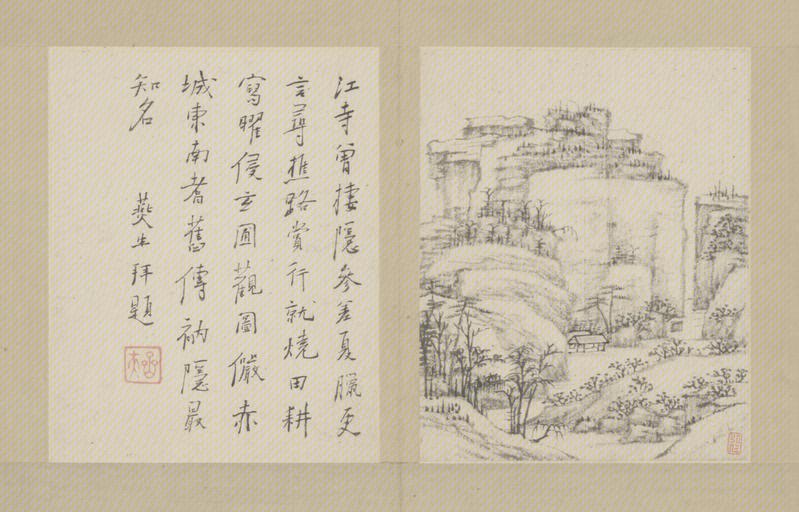 江寺曾棲隱參差夏臘更
言尋樵路賞行就燒田耕
寫曜侵玄圃觀圖儼赤
城東南耆舊傳衲隱最
知名
燕生拜題